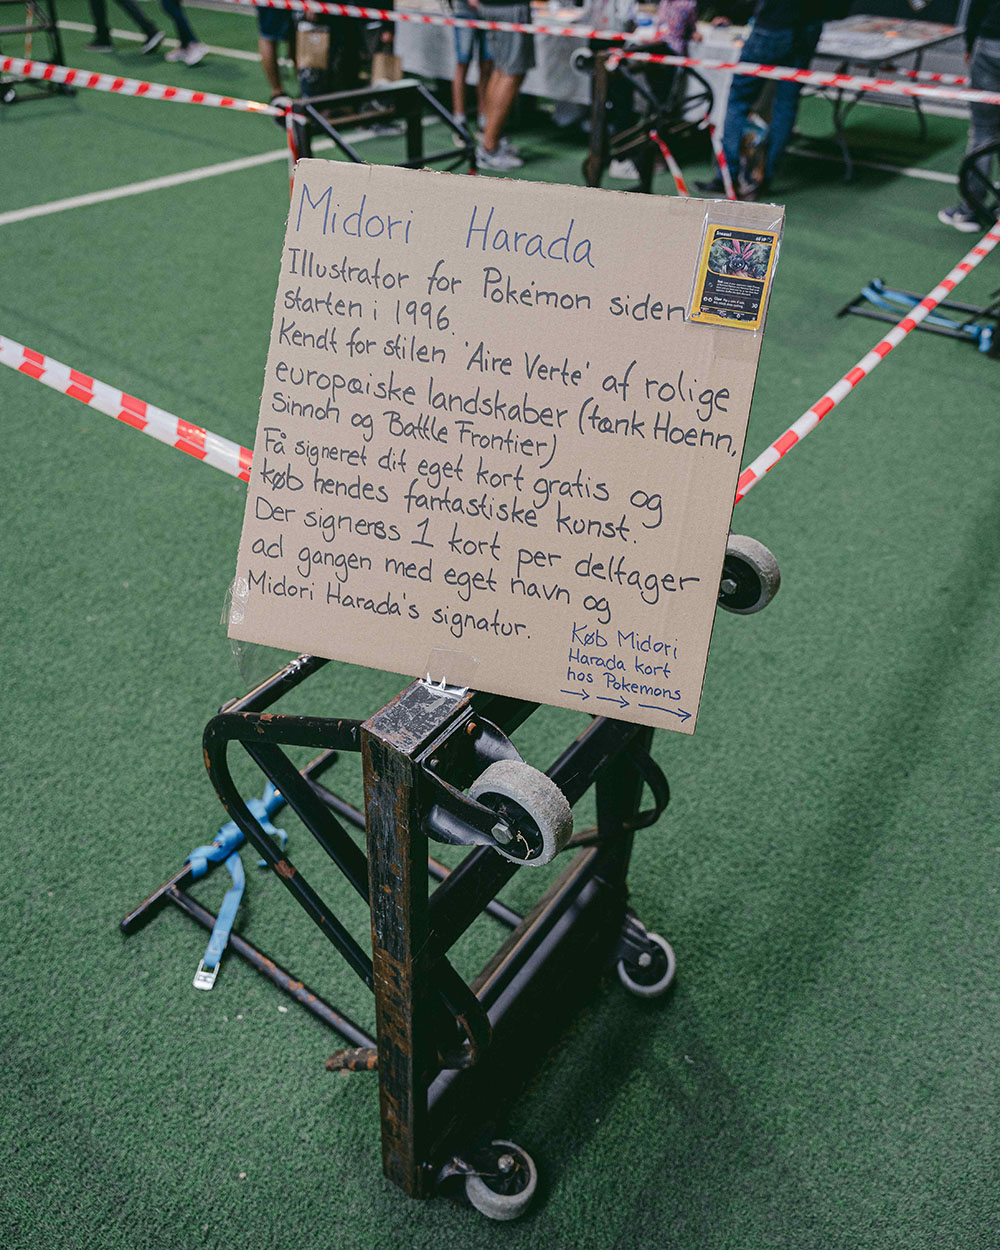 Midori Harada
Illustrator for Pokémon siden
starten i 1996.
Kendt for stilen 'Aire Verte' af rolige
europæiske landskaber (tænk Hoenn,
Sinnoh og Battle Frontier)
Få signeret dit eget kort gratis og
køb hendes fantastiske kunst.
Der signeres 1 kort per deltager
ad gangen med eget navn og
Midori Harada's signatur.
Køb Midori
Harada kort
hos Pokemons
Sneasel
30